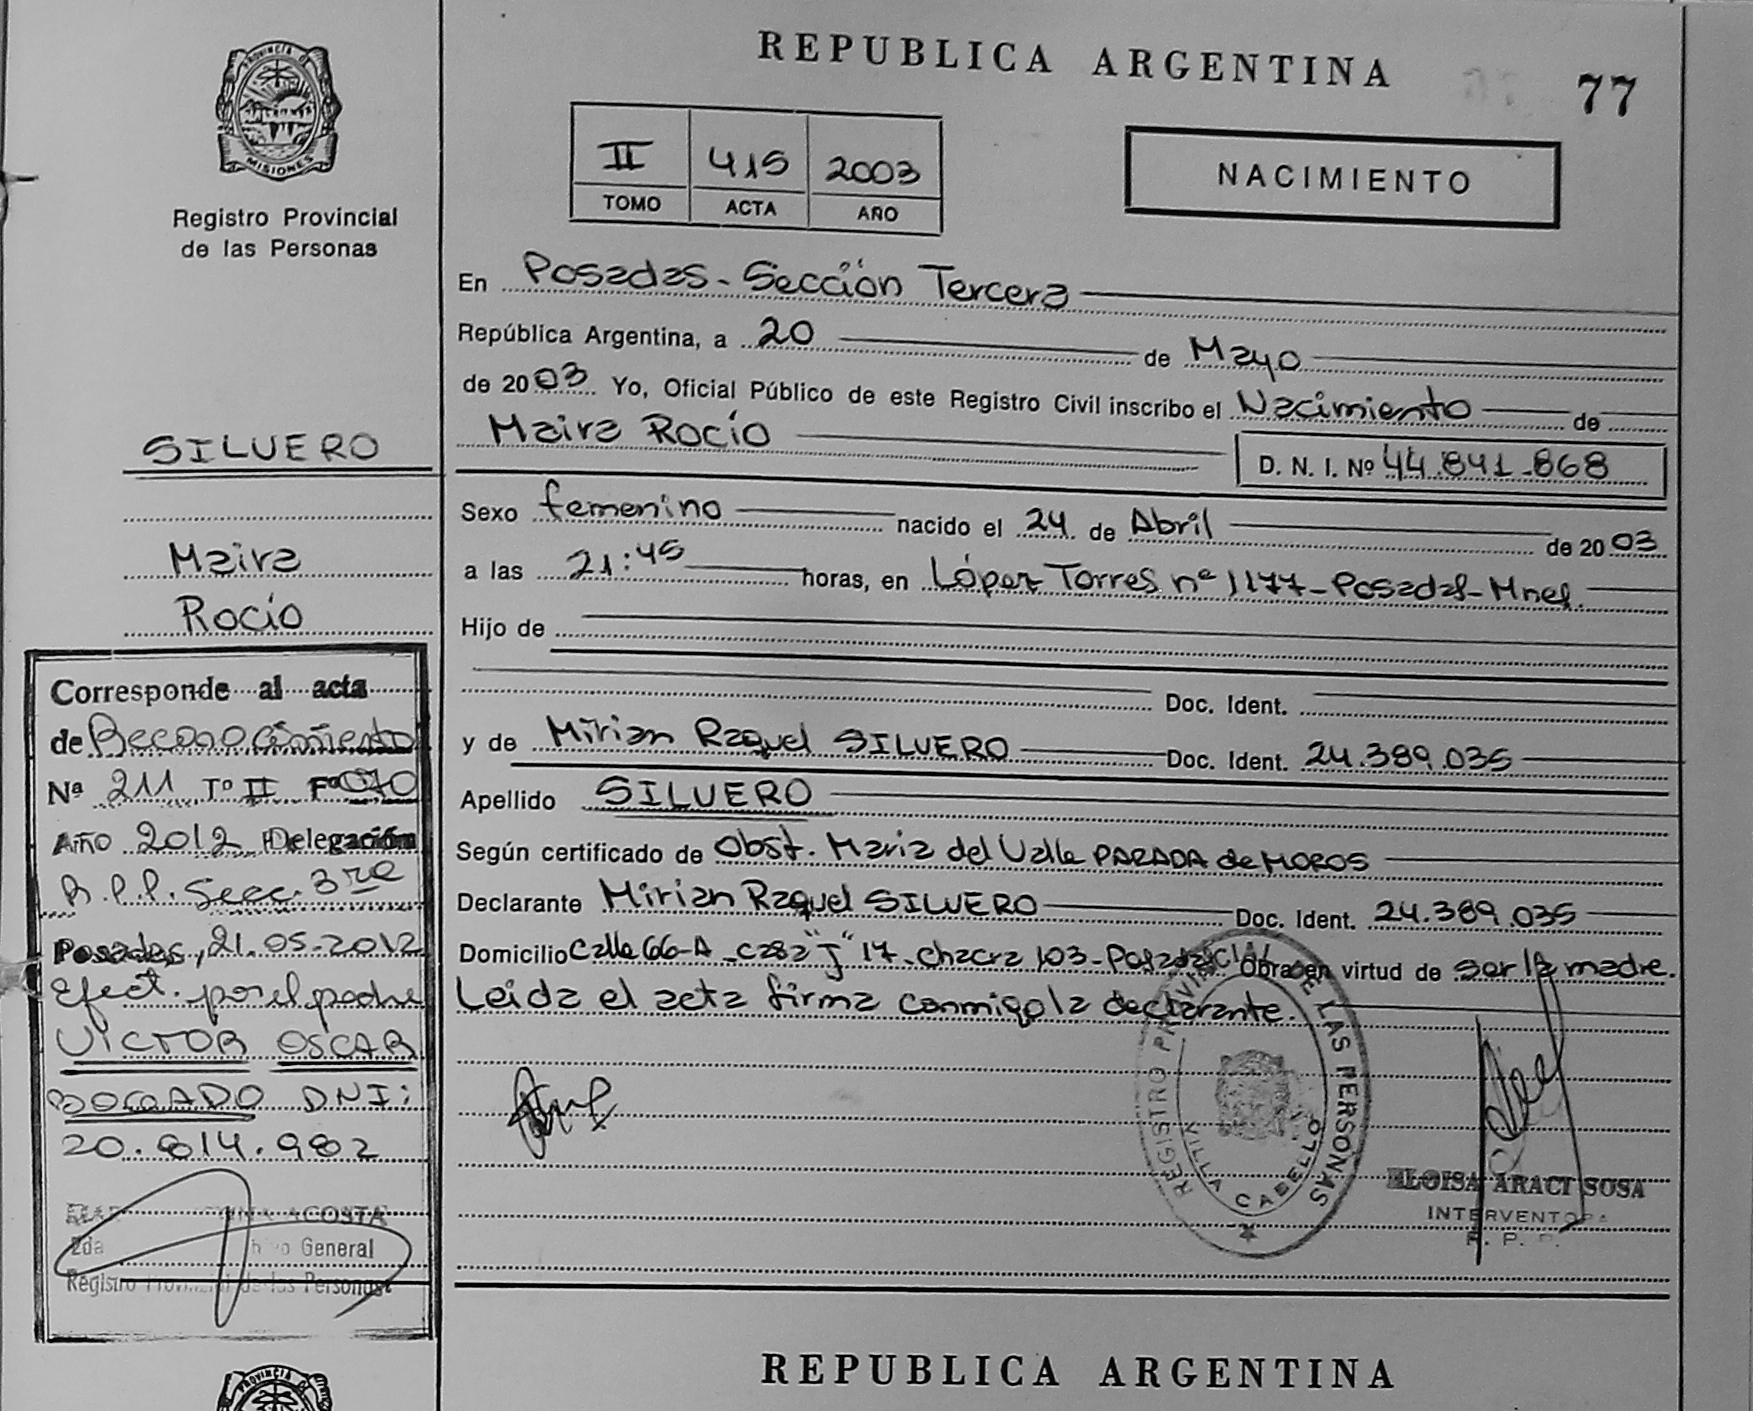 PROVINCIA DE
MISIONES
Registro Provincial
de las Personas
SILVERO
Maira
Rocío
Corresponde al acta
de Reconocimiento
Nª 211 Tº II Fº 070
Año 2012 Delegación
R.P.P. Secc. 3ra
Posadas, 21.05-2012
Efect. por el padre
VICTOR OSCAR
BOGADO DNI:
20.814.982
ACOSTA
General
Registro Provincial de las Personas
REPUBLICA ARGENTINA
77
II 415 2003
TOMO ACTA AÑO
NACIMIENTO
En Posadas - Sección Tercera
República Argentina, a 20 de Mayo
de 2003 Yo, Oficial Público de este Registro Civil inscribo el Nacimiento de
Maira Rocío
D. N. I. Nº 44.841.868
Sexo femenino nacido el 24 de Abril de 2003
a las 21:45 horas, en López Torres nº 1177 - Posadas - Mnes.
Hijo de
Doc. Ident.
y de Mirian Raquel SILVERO Doc. Ident. 24.389.035
Apellido SILVERO
Según certificado de Obst. María del Valle PARADA de MOROS
Declarante Mirian Raquel SILVERO Doc. Ident. 24.389.035
Domicilio Calle 66-A - casa "J" 17 - chacra 103 - Posadas Obra en virtud de ser la madre.
Leida el acta firma conmigo la declarante.
REGISTRO PROVINCIAL DE LAS PERSONAS
VILLA CABELLO
ELOISA ARACI SOSA
INTERVENTORA
R. P. P.
PROVINCIA DE
REPUBLICA ARGENTINA